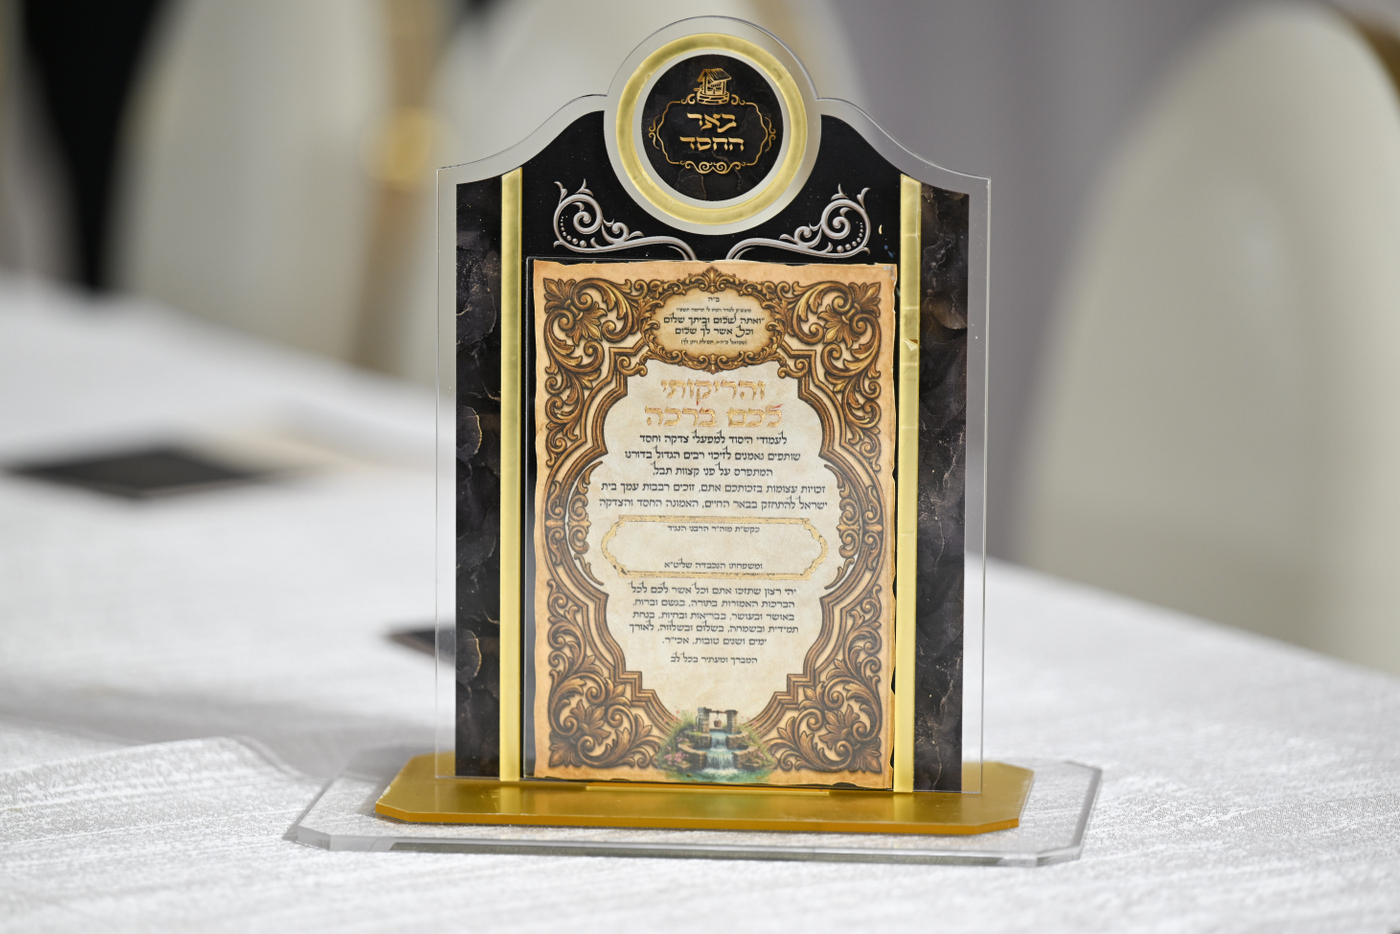 באר
החסד
ב"ה
"ואתה שלום וביתך שלום
וכל אשר לך שלום
והריקותי
לכם ברכה
לעמודי היסוד למפעלי צדקה וחסד
שותפים נאמנים לזיכוי רבים הגדול בדורנו
המתפרס על פני קצוות תבל,
זכויות עצומות בזכותכם אתם, זוכים רבבות עמך בית
ישראל להתחזק בבאר החיים, האמונה החסד והצדקה
כקש"ת מוה"ר הרבני הנגיד
ומשפחתו הנכבדה שליט"א
יהי רצון שתזכו אתם וכל אשר לכם לכל
הברכות האמורות בתורה, בגשם וברוח,
באושר ובעושר, בבריאות ובחיות, בנחת
תמידית ובשמחה, בשלום ובשלווה, לאורך
ימים ושנים טובות, אכי"ר.
המברך ומעתיר בכל לב